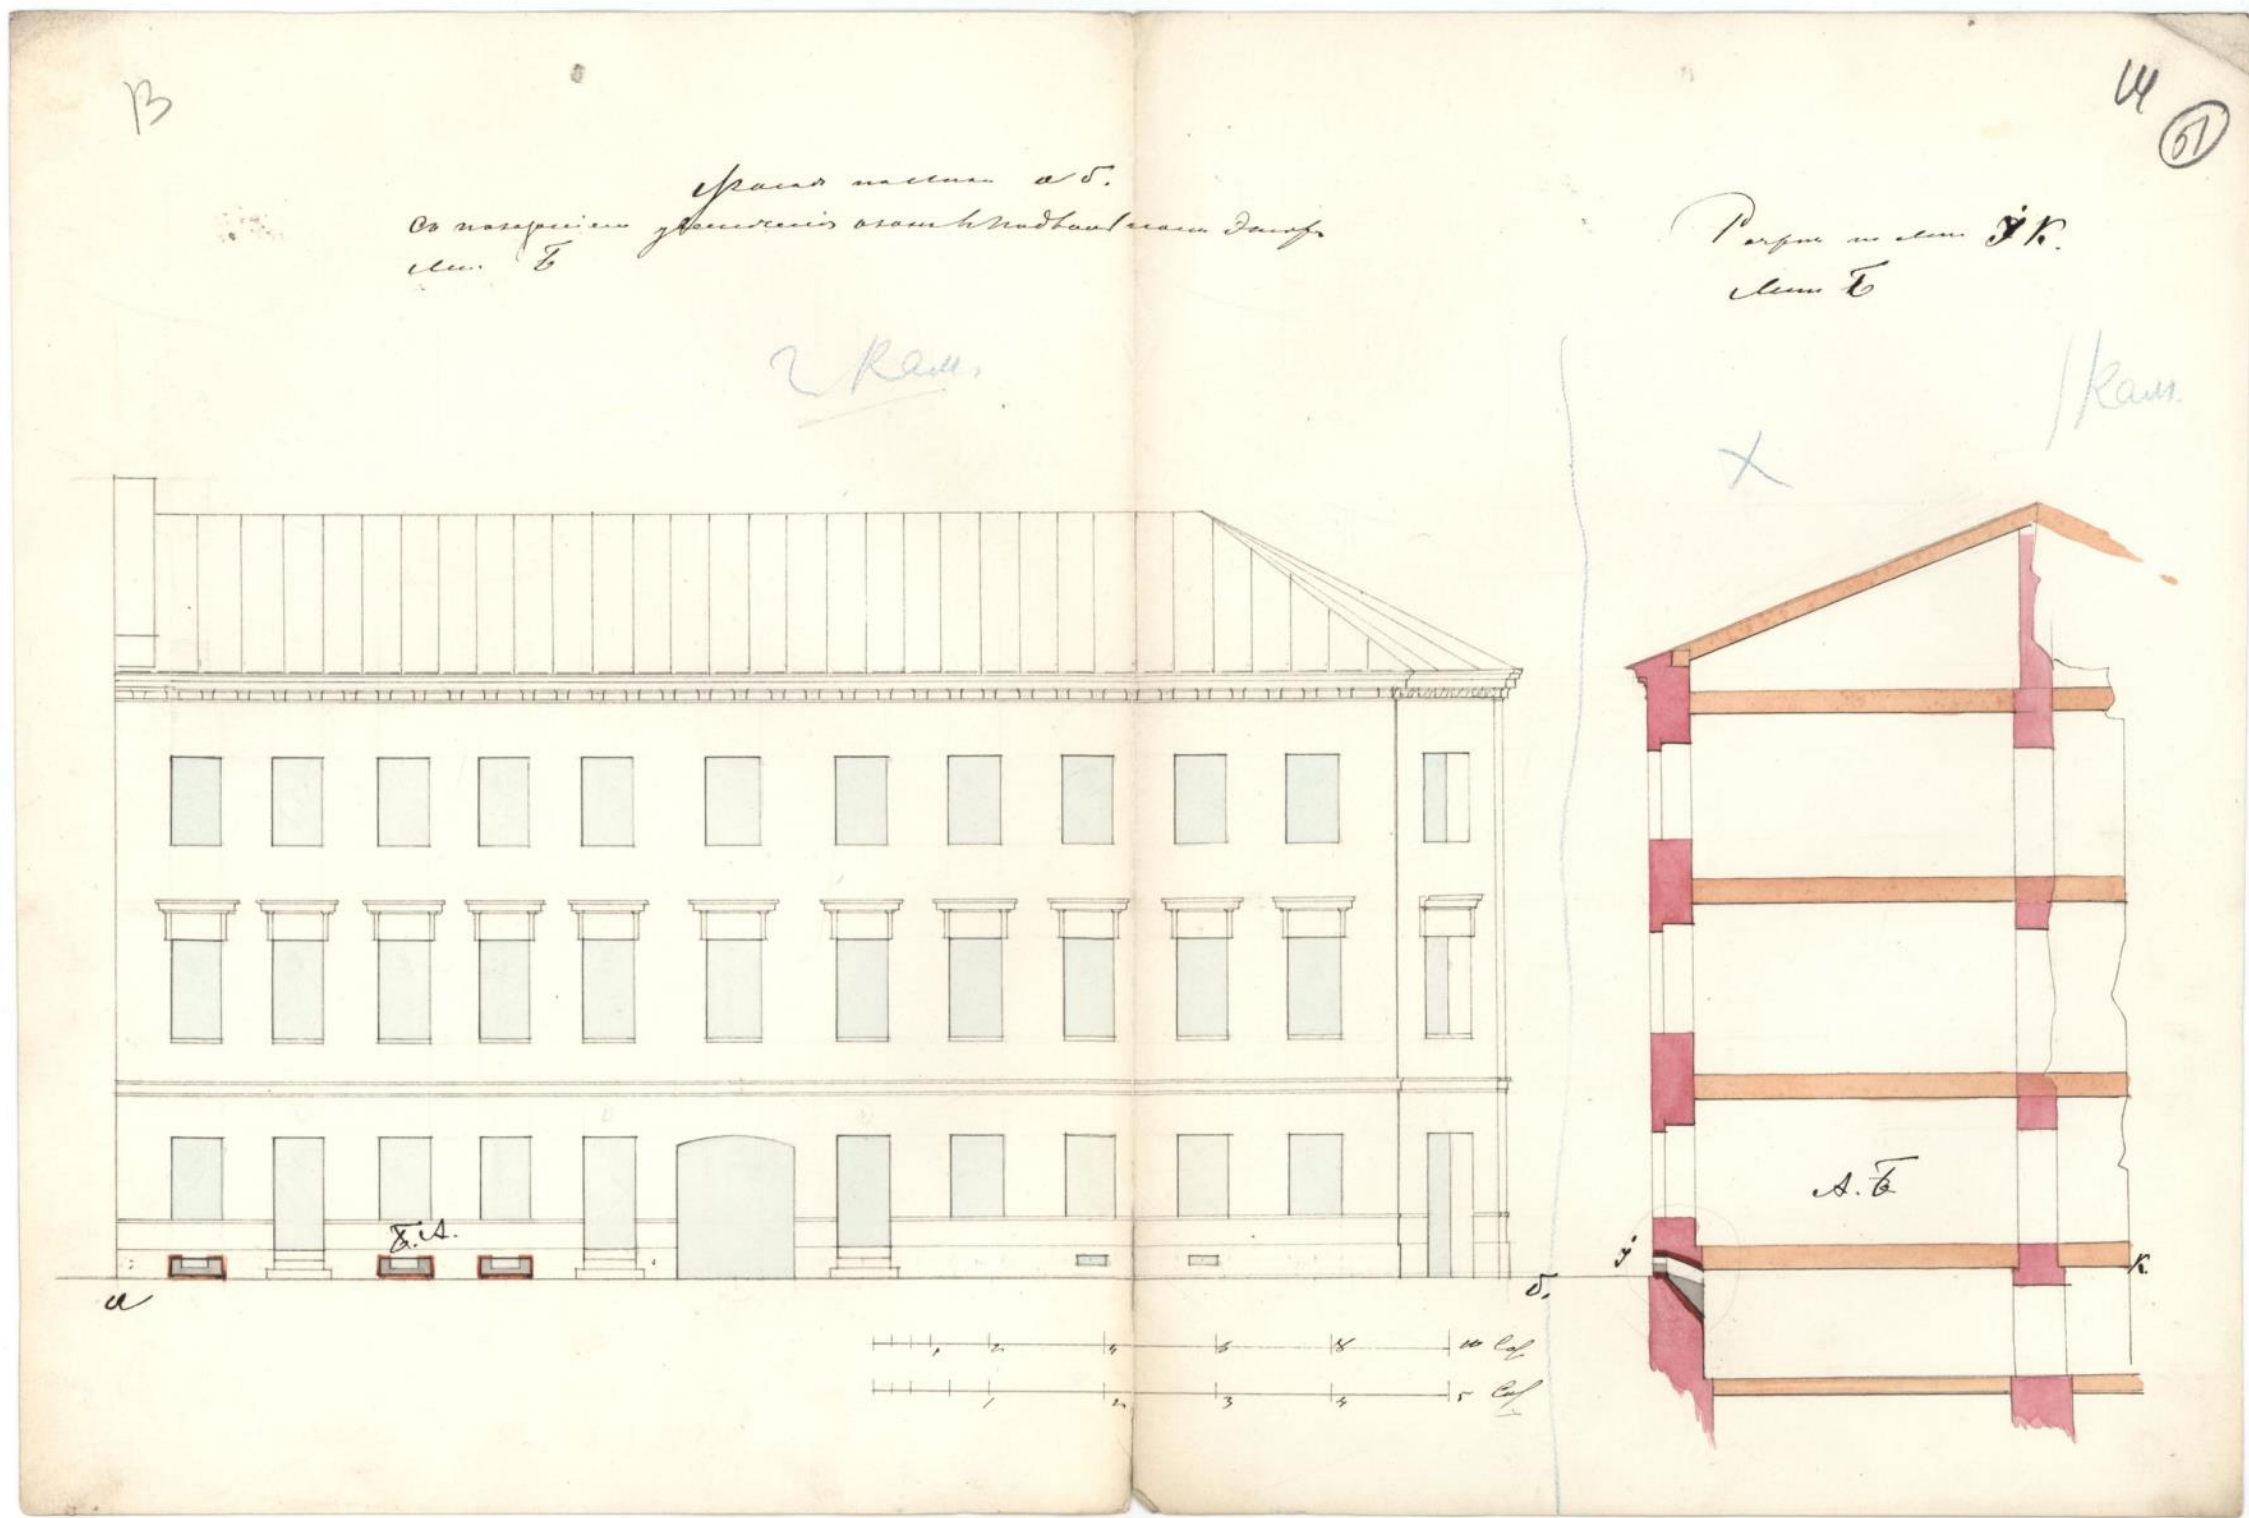 В
Щ
51
Фасад по линии а б.
съ показаніем увеличенія оконъ въ подвальномъ этаже
Лит. Б
Разрез по лин I К.
Лит Б
2 Кам.
1 Кам.
Б.А.
А.Б
I
К.
а
б.
1 2 4 6 8 10 Саж
1 2 3 4 5 Саж